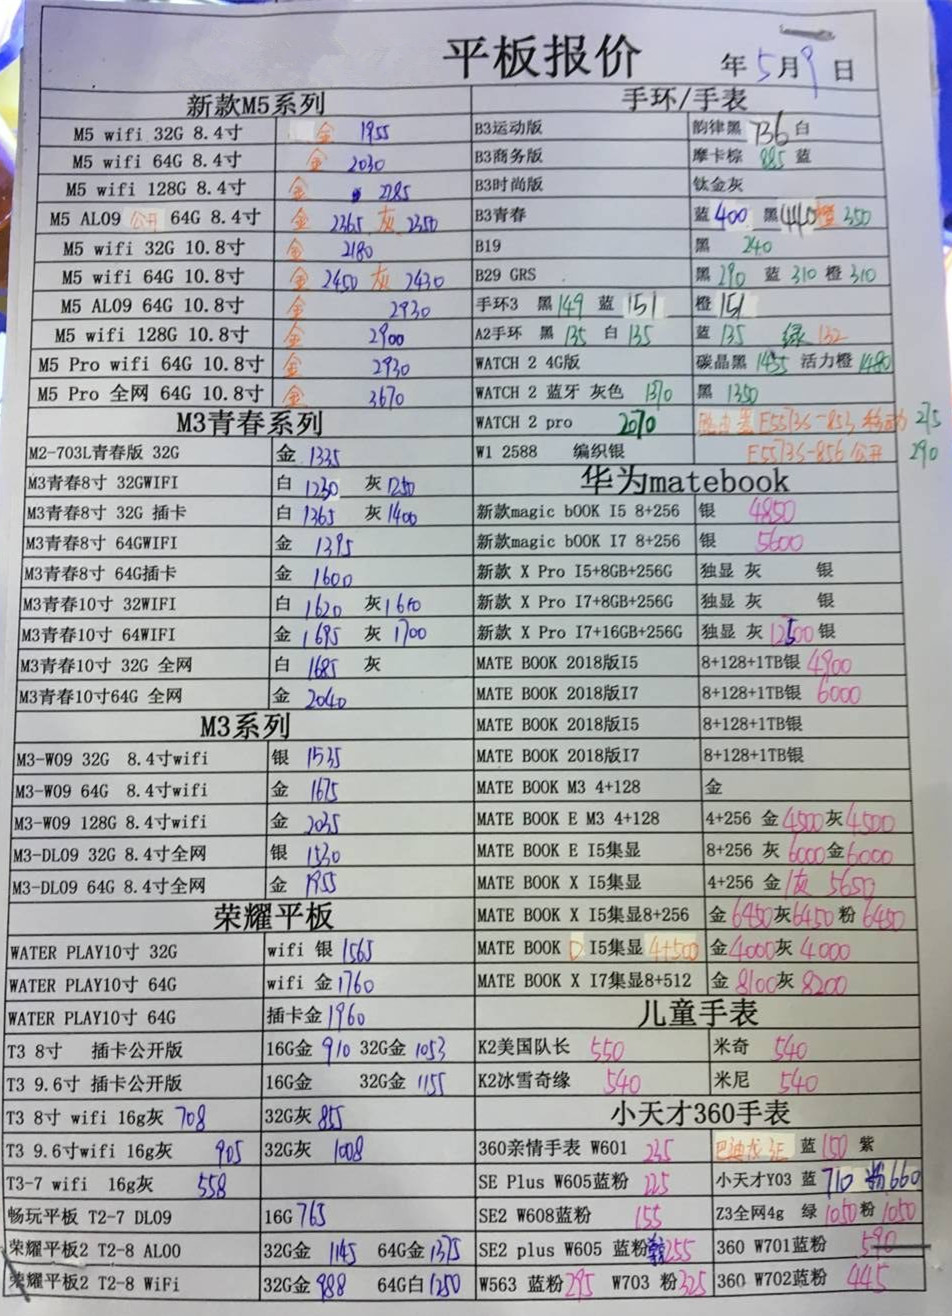 平板报价
年5月9日
新款M5系列
M5 wifi 32G 8.4寸 金 1955
M5 wifi 64G 8.4寸 金 2030
M5 wifi 128G 8.4寸 金 2285
M5 AL09 公开 64G 8.4寸 金 2365 灰 2350
M5 wifi 32G 10.8寸 金 2180
M5 wifi 64G 10.8寸 金 2450 灰 2430
M5 AL09 64G 10.8寸 金 2930
M5 wifi 128G 10.8寸 金 2900
M5 Pro wifi 64G 10.8寸 金 2930
M5 Pro 全网 64G 10.8寸 金 3670
M3青春系列
M2-703L青春版 32G 金 1335
M3青春8寸 32GWIFI 白 1230 灰 1250
M3青春8寸 32G 插卡 白 1365 灰 1400
M3青春8寸 64GWIFI 金 1395
M3青春8寸 64G插卡 金 1600
M3青春10寸 32WIFI 白 1620 灰 1610
M3青春10寸 64WIFI 金 1695 灰 1700
M3青春10寸 32G 全网 白 1685 灰
M3青春10寸64G 全网 金 2040
M3系列
M3-W09 32G 8.4寸wifi 银 1535
M3-W09 64G 8.4寸wifi 金 1675
M3-W09 128G 8.4寸wifi 金 2035
M3-DL09 32G 8.4寸全网 银 1530
M3-DL09 64G 8.4寸全网 金 1955
荣耀平板
WATER PLAY10寸 32G wifi 银 1565
WATER PLAY10寸 64G wifi 金 1760
WATER PLAY10寸 64G 插卡金 1960
T3 8寸 插卡公开版 16G金 910 32G金 1053
T3 9.6寸 插卡公开版 16G金 32G金 1155
T3 8寸 wifi 16g灰 708 32G灰 855
T3 9.6寸wifi 16g灰 905 32G灰 1008
T3-7 wifi 16g灰 558
畅玩平板 T2-7 DL09 16G 765
荣耀平板2 T2-8 AL00 32G金 1145 64G金 1375
荣耀平板2 T2-8 WiFi 32G金 988 64G白 1250
手环/手表
B3运动版 韵律黑 736 白
B3商务版 摩卡棕 885 蓝
B3时尚版 钛金灰
B3青春 蓝 400 黑 440 橙 350
B19 黑 240
B29 GRS 黑 290 蓝 310 橙 310
手环3 黑 149 蓝 151 橙 151
A2手环 黑 135 白 135 蓝 135 绿 132
WATCH 2 4G版 碳晶黑 1455 活力橙 1480
WATCH 2 蓝牙 灰色 1370 黑 1350
WATCH 2 pro 2070 E5573S-853 移动 275
W1 2588 编织银 E5573S-856 公开 290
华为matebook
新款magic bOOK I5 8+256 银 4850
新款magic bOOK I7 8+256 银 5600
新款 X Pro I5+8GB+256G 独显 灰 银
新款 X Pro I7+8GB+256G 独显 灰 银
新款 X Pro I7+16GB+256G 独显 灰 12500 银
MATE BOOK 2018版I5 8+128+1TB银 4900
MATE BOOK 2018版I7 8+128+1TB银 6000
MATE BOOK 2018版I5 8+128+1TB银
MATE BOOK 2018版I7 8+128+1TB银
MATE BOOK M3 4+128 金
MATE BOOK E M3 4+128 4+256 金 4500 灰 4500
MATE BOOK E I5集显 8+256 灰 6000 金 6000
MATE BOOK X I5集显 4+256 金 灰 5650
MATE BOOK X I5集显8+256 金 6450 灰 6450 粉 6450
MATE BOOK D I5集显 4+500 金 4000 灰 4000
MATE BOOK X I7集显8+512 金 8100 灰 8200
儿童手表
K2美国队长 550 米奇 540
K2冰雪奇缘 540 米尼 540
小天才360手表
360亲情手表 W601 235 巴迪龙 3E 蓝 150 紫
SE Plus W605蓝粉 225 小天才Y03 蓝 710 粉 660
SE2 W608蓝粉 155 Z3全网4g 绿 1050 粉 1050
SE2 plus W605 蓝粉 255 360 W701蓝粉 590
W563 蓝粉 295 W703 粉 325 360 W702蓝粉 445